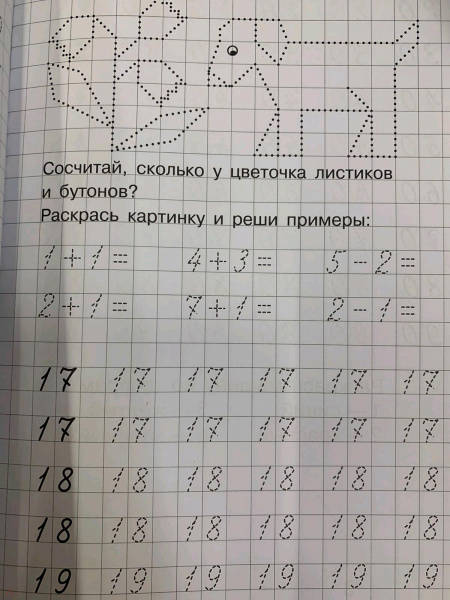 Сосчитай, сколько у цветочка листиков
и бутонов?
Раскрась картинку и реши примеры:
1+1= 4+3= 5-2=
2+1= 7+1= 2-1=
17 17 17 17 17 17
17 17 17 17 17 17
18 18 18 18 18 18
18 18 18 18 18 18
19 19 19 19 19 19